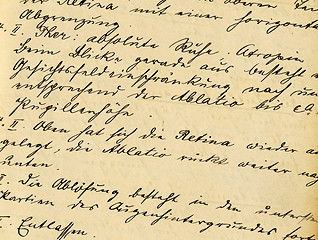 der Retina mit einer horizontalen
Abgrenzung.
4. II. Ther: absolute Ruhe. Atropin
Beim Blick gerade aus besteht e
Gesichtsfeldeinschränkung nach un
entsprechend der Ablatio bis ca.
Pupillenhöhe.
4. II. Oben hat sich die Retina wieder an
gelegt, die Ablatio rückt weiter nach
unten.
II. Die Ablösung besteht in den untersten
Partien des Augenhintergrundes fort
Entlassen.